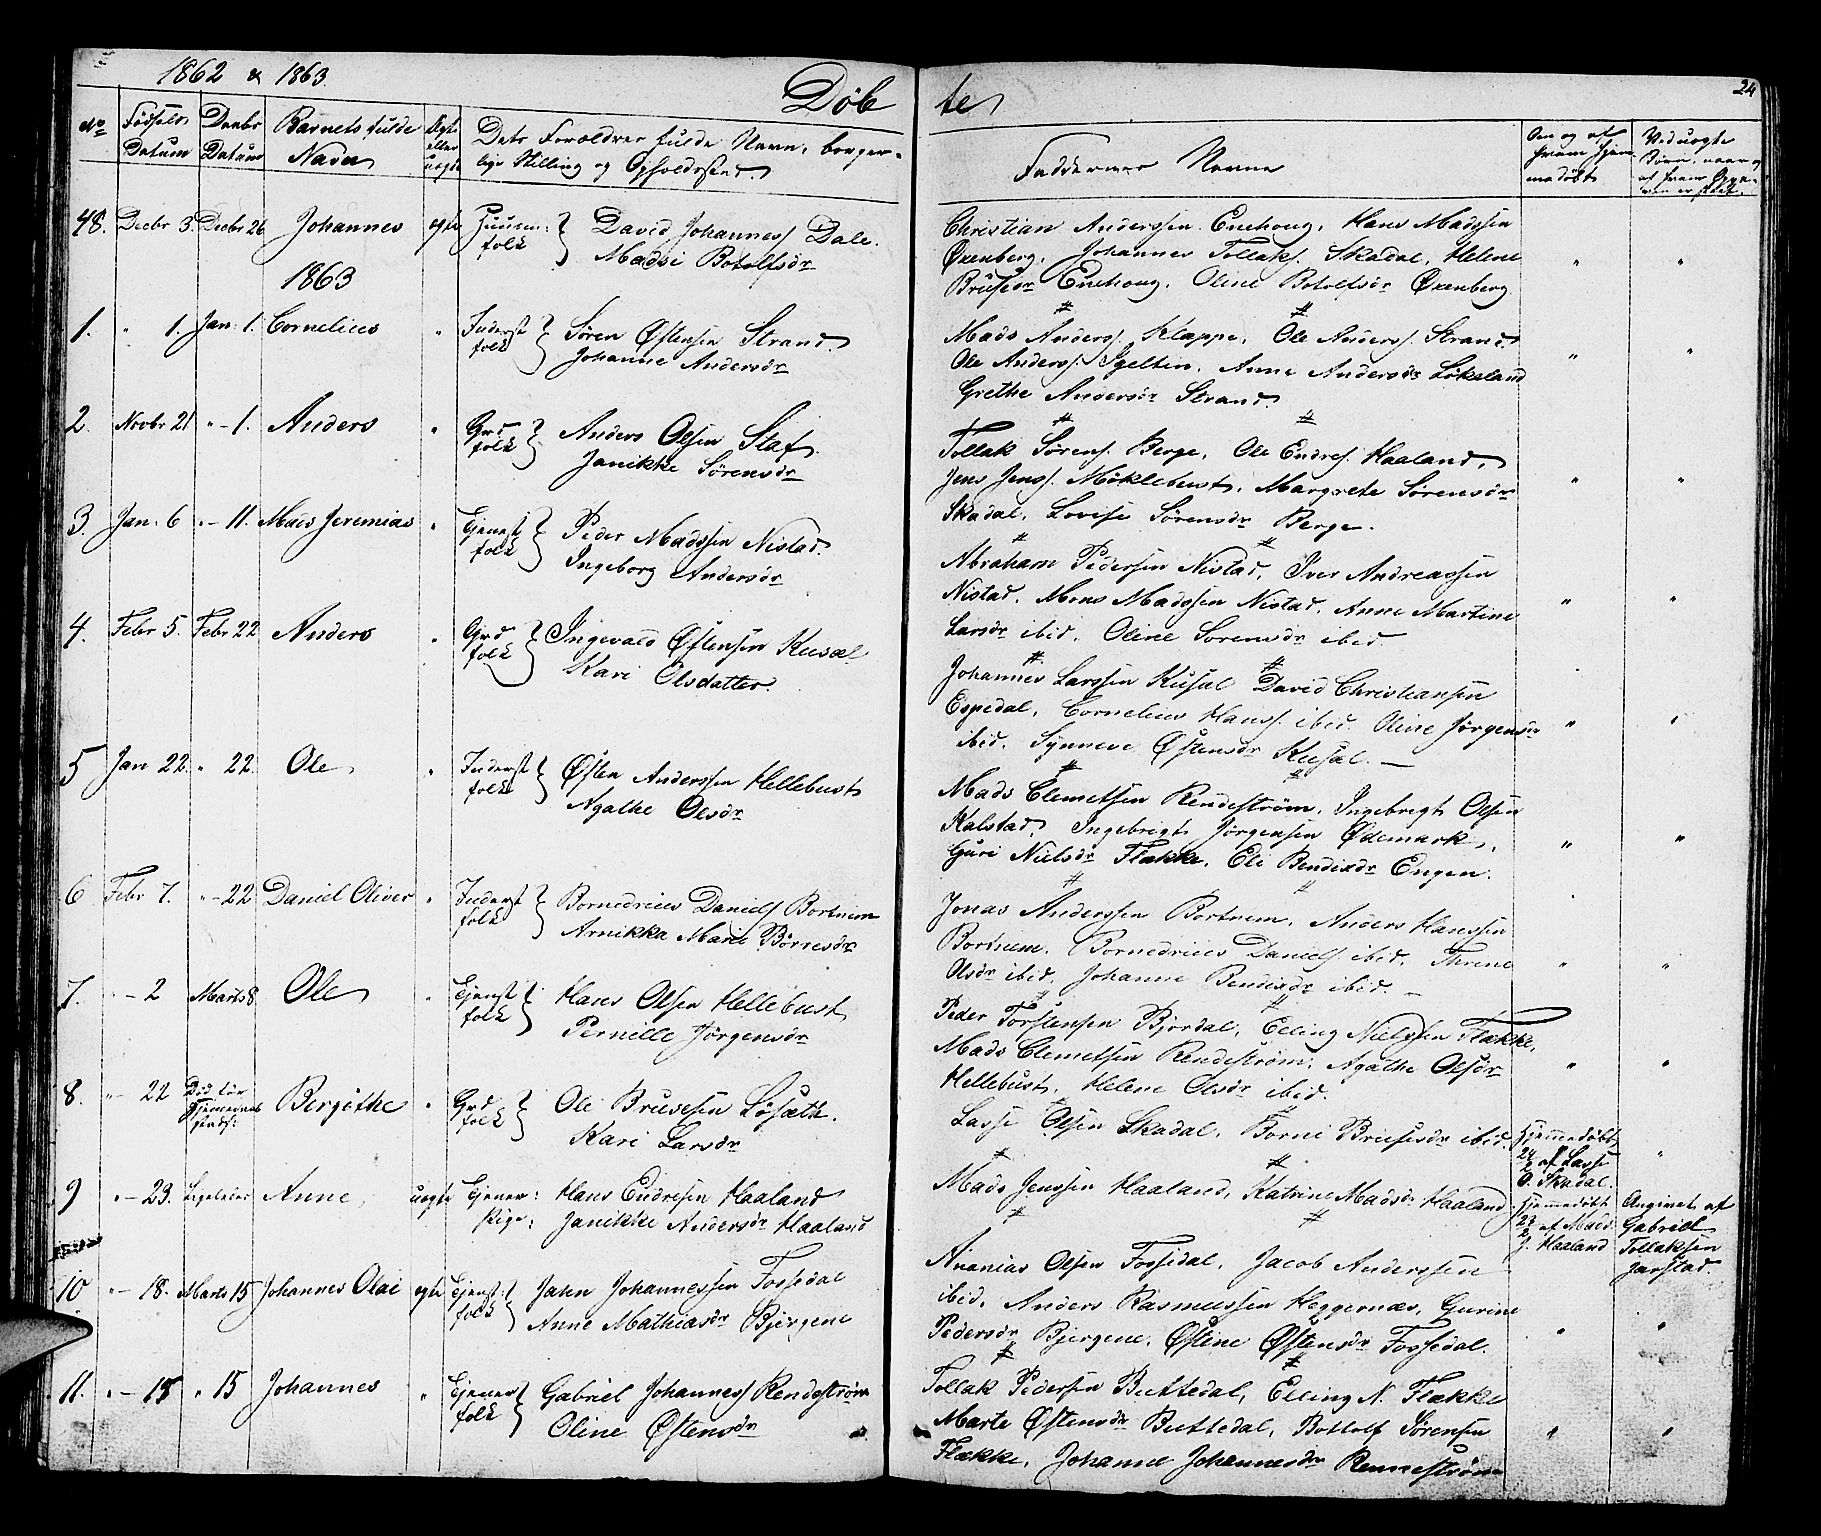 1862 & 1863.
Døb
te
24
No
Fødsels Datum
Daabs Datum
Barnets fulde Navn
Ægte eller uægte
Dets Forældres fulde Navn, borgerlige Stilling og Opholdssted.
Faddernes Navne
Om og af hvem hjemmedøbt
Ved uægte Børn, naar og af hvem
48. Decbr 3. Decbr 26 Johannes ægte Huusmfolk David Johanness. Dale.
Madsi Botolfsdr
Christian Anderssen Enehoug, Hans Madssen
Øxenberg, Johannes Tollaks. Skadal, Helene
Brusedr Enehoug, Oline Botolfsdr Øxenberg
1863
1. " 1. Jan: 1. Cornelius " Inderstfolk Søren Østensen Strand.
Johanne Andersdr
Mads Anders. Klappe, Ole Anders. Strand
Ole Anders. Igeltin, Anne Andersdr Løkeland
Grethe Andersdr Strand.
2. Novbr 21 " - 1. Anders " Grdfolk Anders Olsen Staf.
Janikke Sørensdr
Tollak Sørens. Berge, Ole Endres. Haaland,
Jens Jens. Møklebust, Margrete Sørensdr
Skadal, Lovise Sørensdr Berge.
3. Jan: 6 " - 11. Mads Jeremias " Tjenestfolk Peder Madssen Nistad.
Ingeborg Andersdr
Abraham Pedersen Nistad, Iver Andreassen
Nistad, Mons Madssen Nistad, Anne Martine
Larsdr ibid, Oline Sørensdr ibid.
4. Febr 5. Febr 22 Anders " Grdfolk Ingevald Østensen Kusæl
Kari Olsdatter.
Johannes Larssen Kusal David Christiansen
Espedal, Cornelius Hans. ibid. Oline Jørgensdr
ibid. Synneve Østensdr Kusal. —
5 Jan 22 " 22. Ole " Inderstfolk Østen Anderssen Hellebust
Agathe Olsdr
Mads Clemetsen Rendestrøm, Ingebrigt Olsen
Kalstad, Ingebrigt Jørgensen Ødemark,
Guri Nielsdr Flække, Eli Bendixdr Engen.
6 Febr 7. " - 22 Daniel Oliver " Inderstfolk Bornedrius Daniels Bortnem
Arnikka Marie Børresdr
Jonas Anderssen Bortnem, Anders Hanssen
Bortnem, Bornedrius Daniels ibid, Threne
Olsdr ibid, Johanne Bendixdr ibid. —
7. " - 2 Marts 8. Ole " Tjenstfolk Hans Olsen Hellebust
Pernille Jørgensdr
Peder Torstensen Bjordal, Elling Nielssen Flække,
Mads Clemetsen Rendestrøm, Agathe Olsdr
Hellebust, Helene Olsdr ibid.
8. " - 22 Død før Bergithe " Grdfolk Ole Brusesen Løsæth.
Kari Larsdr
Lasse Olsen Skadal, Borni Brusesdr ibid.
Hjemmedøbt
24/2 af Lasse
O. Skadal.
9 " - 23. Ligeledes Anne, uægte Tjener: Hans Endresen Haaland
Pige: Janikke Andersdr Haaland
Mads Jenssen Haaland, Katrine Madsdr Haaland
Hjemmedøbt
af Mads
J. Haaland
Angivet af
Gabriel
Tollaksen
Jarstad.
10 " - 18. Marts 15 Johannes Olai ægte Tjenst:folk Jahn Johannessen Fossedal
Anne Mathiasdr Bjergene
Ananias Olsen Fossedal, Jacob Anderssen
ibid, Anders Rasmussen Heggernæs, Gurine
Pedersdr Bjergene, Østine Østensdr Fossedal.
11. " - 15 " 15 Johannes " Tjenerfolk Gabriel Johanness Rendestrøm
Oline Østensdr
Tollak Pedersen Buttedal, Elling N. Flække
Marte Østensdr Buttedal, Bottolf Sørensen
Flække, Johanne Johannesdr Rennestrøm